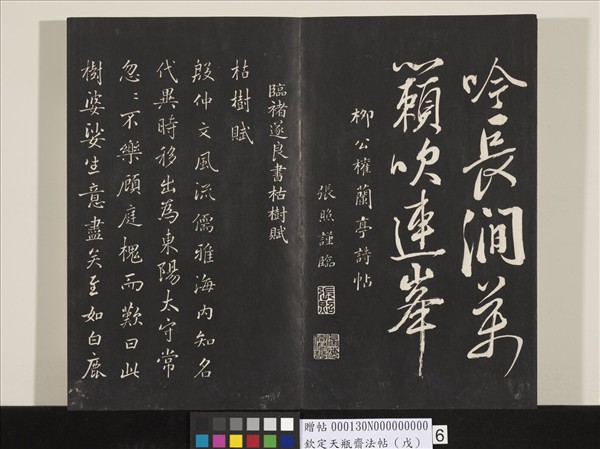 吟長澗萬
籟吹連峯
柳公權蘭亭詩帖
張照謹臨
張照
臨褚遂良書枯樹賦
枯樹賦
殷仲文風流儒雅海内知名
代異時移出為東陽太守常
忽〻不樂顧庭槐而歎曰此
樹婆娑生意盡矣至如白鹿
贈帖 000130N000000000
欽定天瓶齋法帖（戊）
6